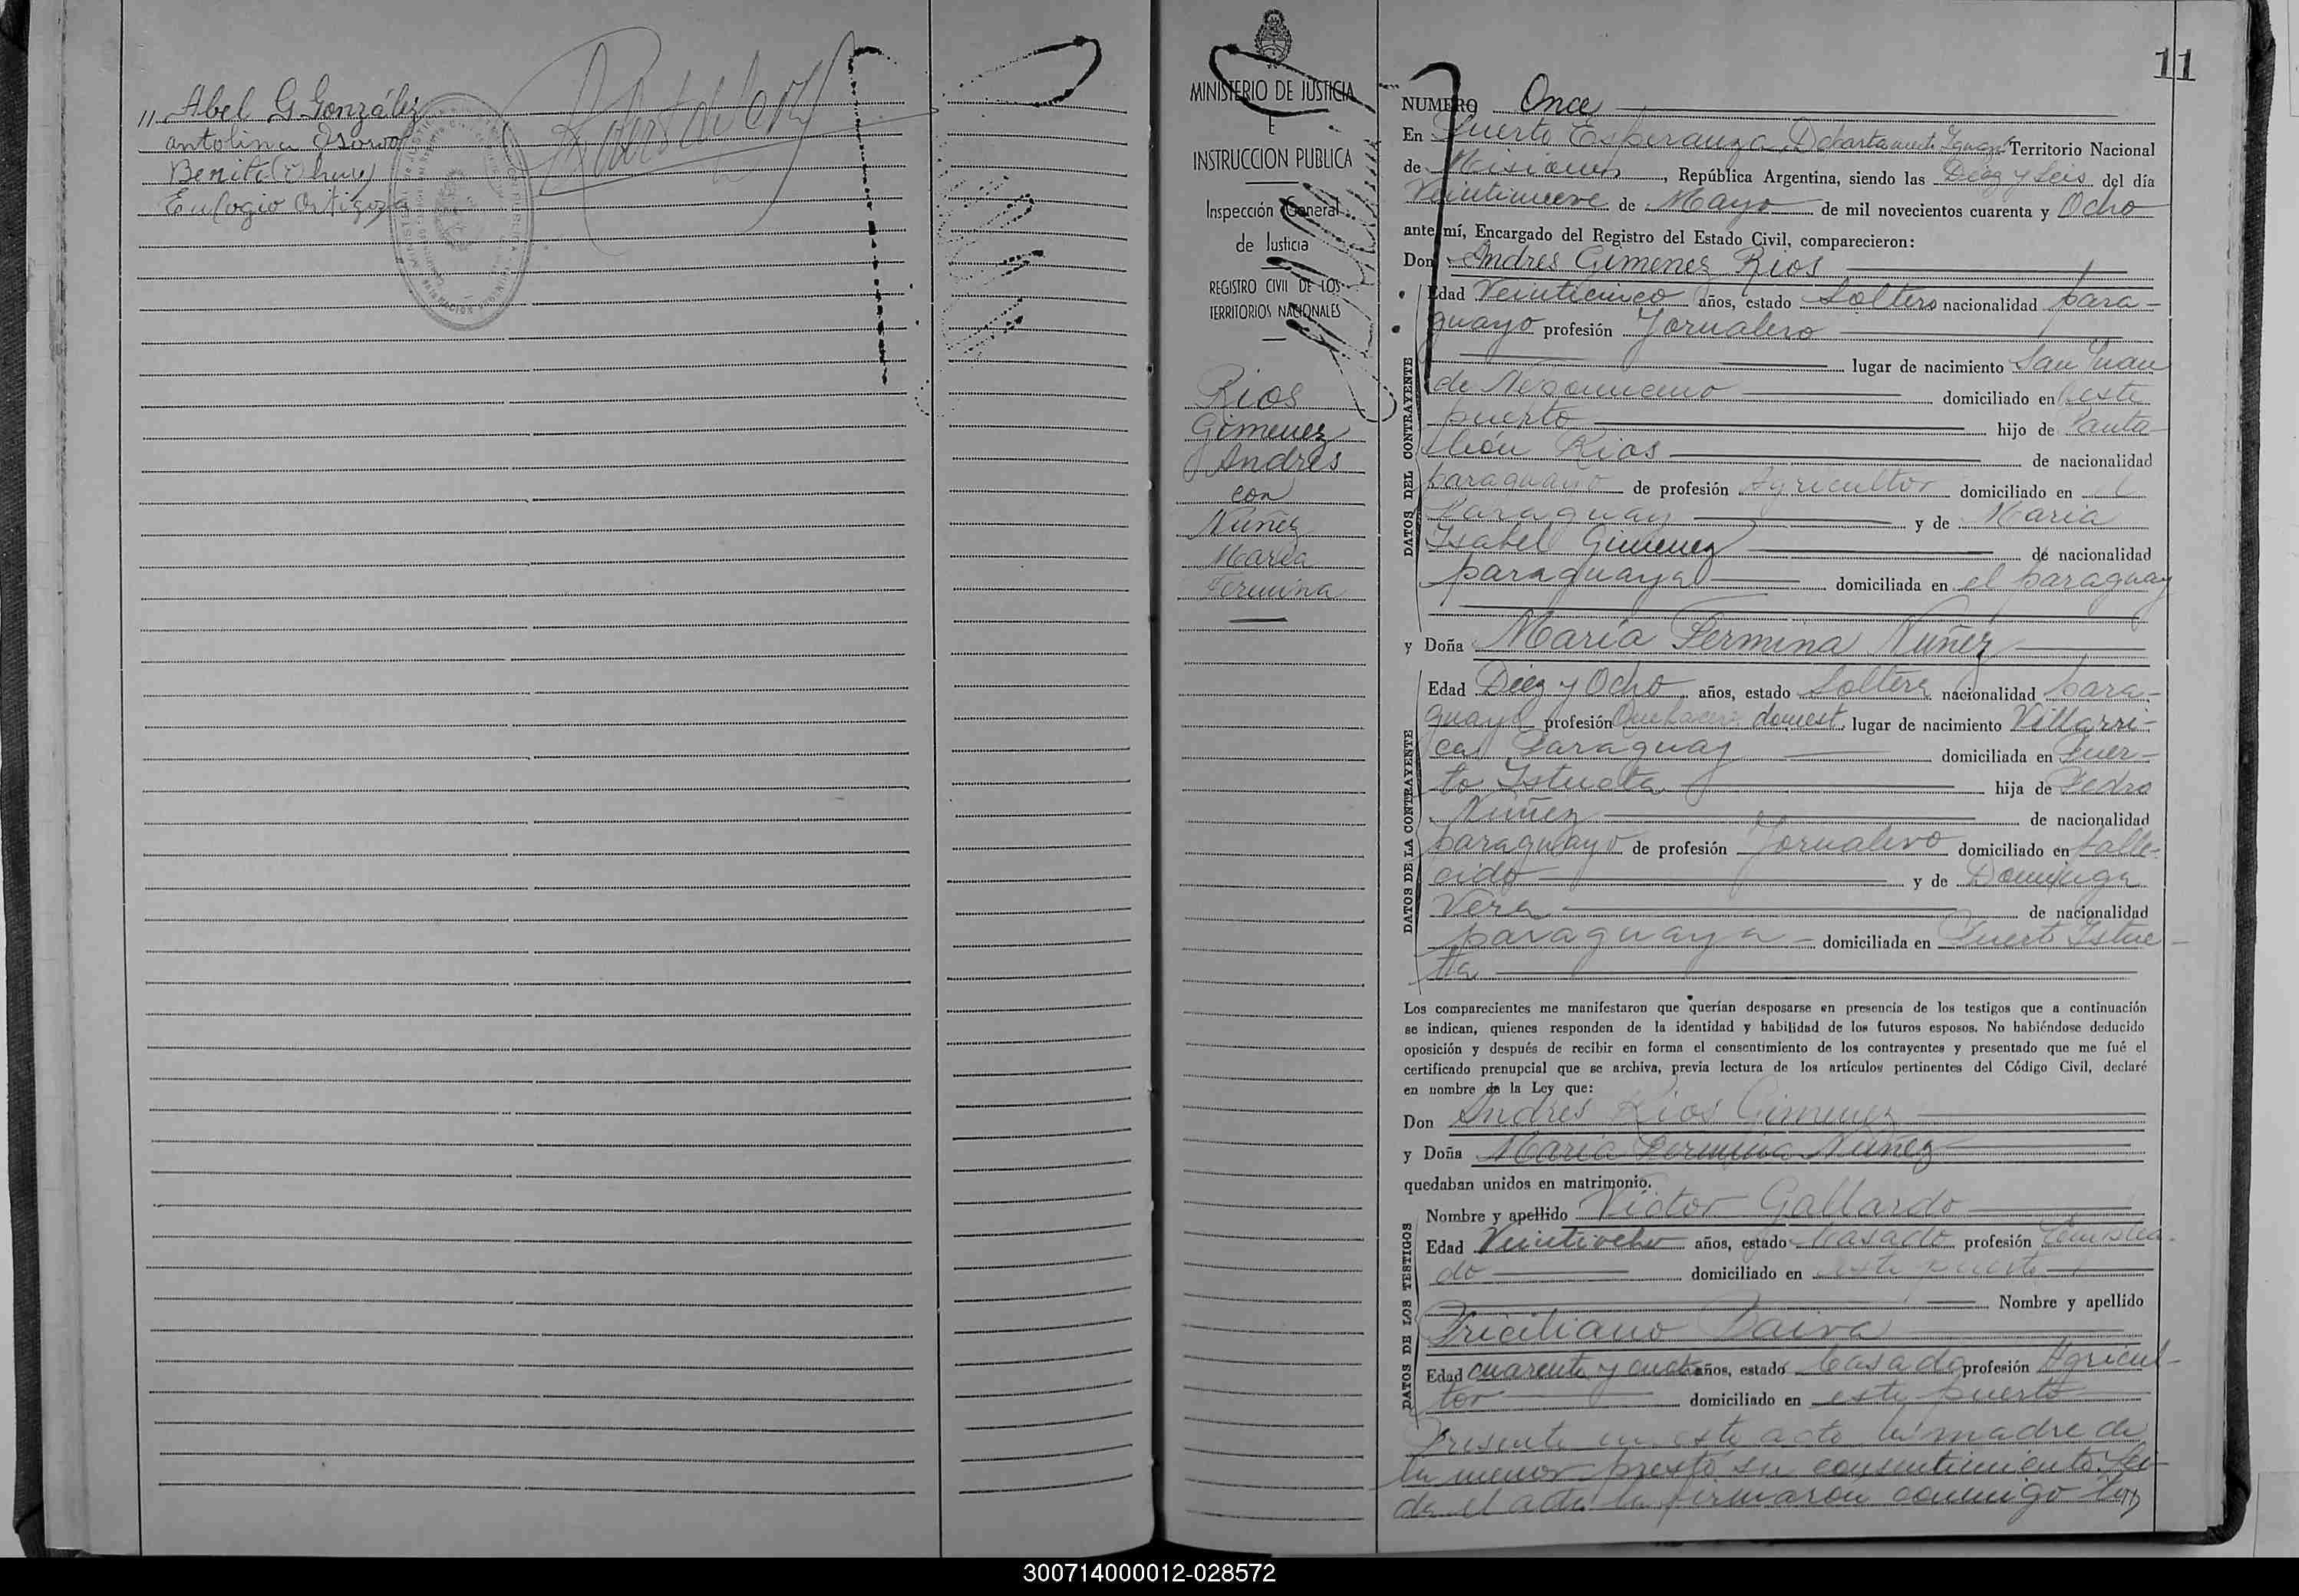 // Abel G González
antolina Osorio
Benito
Eulogio Ortigoza
MINISTERIO DE JUSTICIA
E
INSTRUCCION PUBLICA
Inspección General
de Justicia
REGISTRO CIVIL DE LOS
TERRITORIOS NACIONALES
Rios
Gimenez
Andrés
con
Nuñez
Maria
Fermina
11
NUMERO Once
En Puerto Esperanza, Departamento Iguazú Territorio Nacional
de Misiones, República Argentina, siendo las Diez y Seis del día
Veintinueve de Mayo de mil novecientos cuarenta y Ocho
ante mí, Encargado del Registro del Estado Civil, comparecieron:
Don Andres Gimenez Rios
DATOS DEL CONTRAYENTE
Edad Veinticinco años, estado Soltero nacionalidad para-
guayo profesión Jornalero
lugar de nacimiento San Juan
de Nepomuceno domiciliado en este
puerto hijo de Panta
león Rios de nacionalidad
paraguayo de profesión Agricultor domiciliado en el
Paraguay y de Maria
Isabel Gimenez de nacionalidad
paraguaya domiciliada en el paraguay
y Doña Maria Fermina Nuñez
DATOS DE LA CONTRAYENTE
Edad Diez y Ocho años, estado Soltera nacionalidad para-
guaya profesión Quehaceres domest. lugar de nacimiento Villarri-
ca Paraguay domiciliada en Puer-
to Istueta hija de Pedro
Nuñez de nacionalidad
paraguayo de profesión Jornalero domiciliado en falle-
cido y de Dominga
Vera de nacionalidad
paraguaya domiciliada en Puerto Istue-
ta
Los comparecientes me manifestaron que querían desposarse en presencia de los testigos que a continuación
se indican, quienes responden de la identidad y habilidad de los futuros esposos. No habiéndose deducido
oposición y después de recibir en forma el consentimiento de los contrayentes y presentado que me fué el
certificado prenupcial que se archiva, previa lectura de los artículos pertinentes del Código Civil, declaré
en nombre de la Ley que:
Don Andres Rios Gimenez
y Doña Maria Fermina Nuñez
quedaban unidos en matrimonio.
DATOS DE LOS TESTIGOS
Nombre y apellido Victor Gallardo
Edad Veintiocho años, estado Casado profesión Emplea-
do domiciliado en este puerto
Nombre y apellido
Priciliano Paiva
Edad cuarenta y cuatro años, estado Casado profesión Agricul-
tor domiciliado en este puerto
Presente en este acto la madre de
la menor prestó su consentimiento. Lei-
da el acta la firmaron conmigo los
300714000012-028572